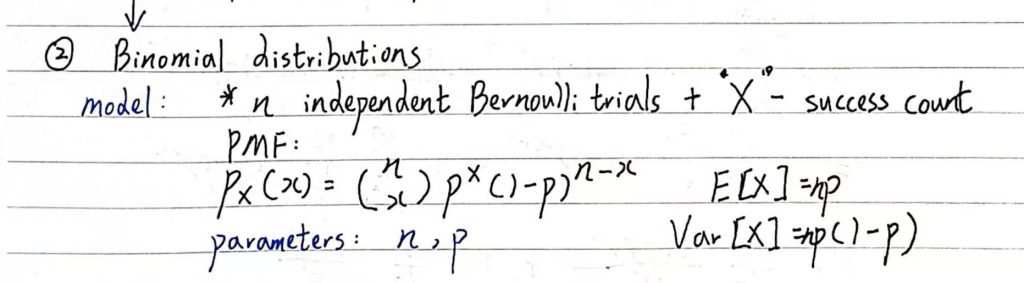 ② Binomial distributions
model: * n independent Bernoulli trials + "X" - success count
PMF:
Pₓ(x) = (n x) pˣ (1-p)ⁿ⁻ˣ E[X] = np
parameters: n, p Var[X] = np(1-p)